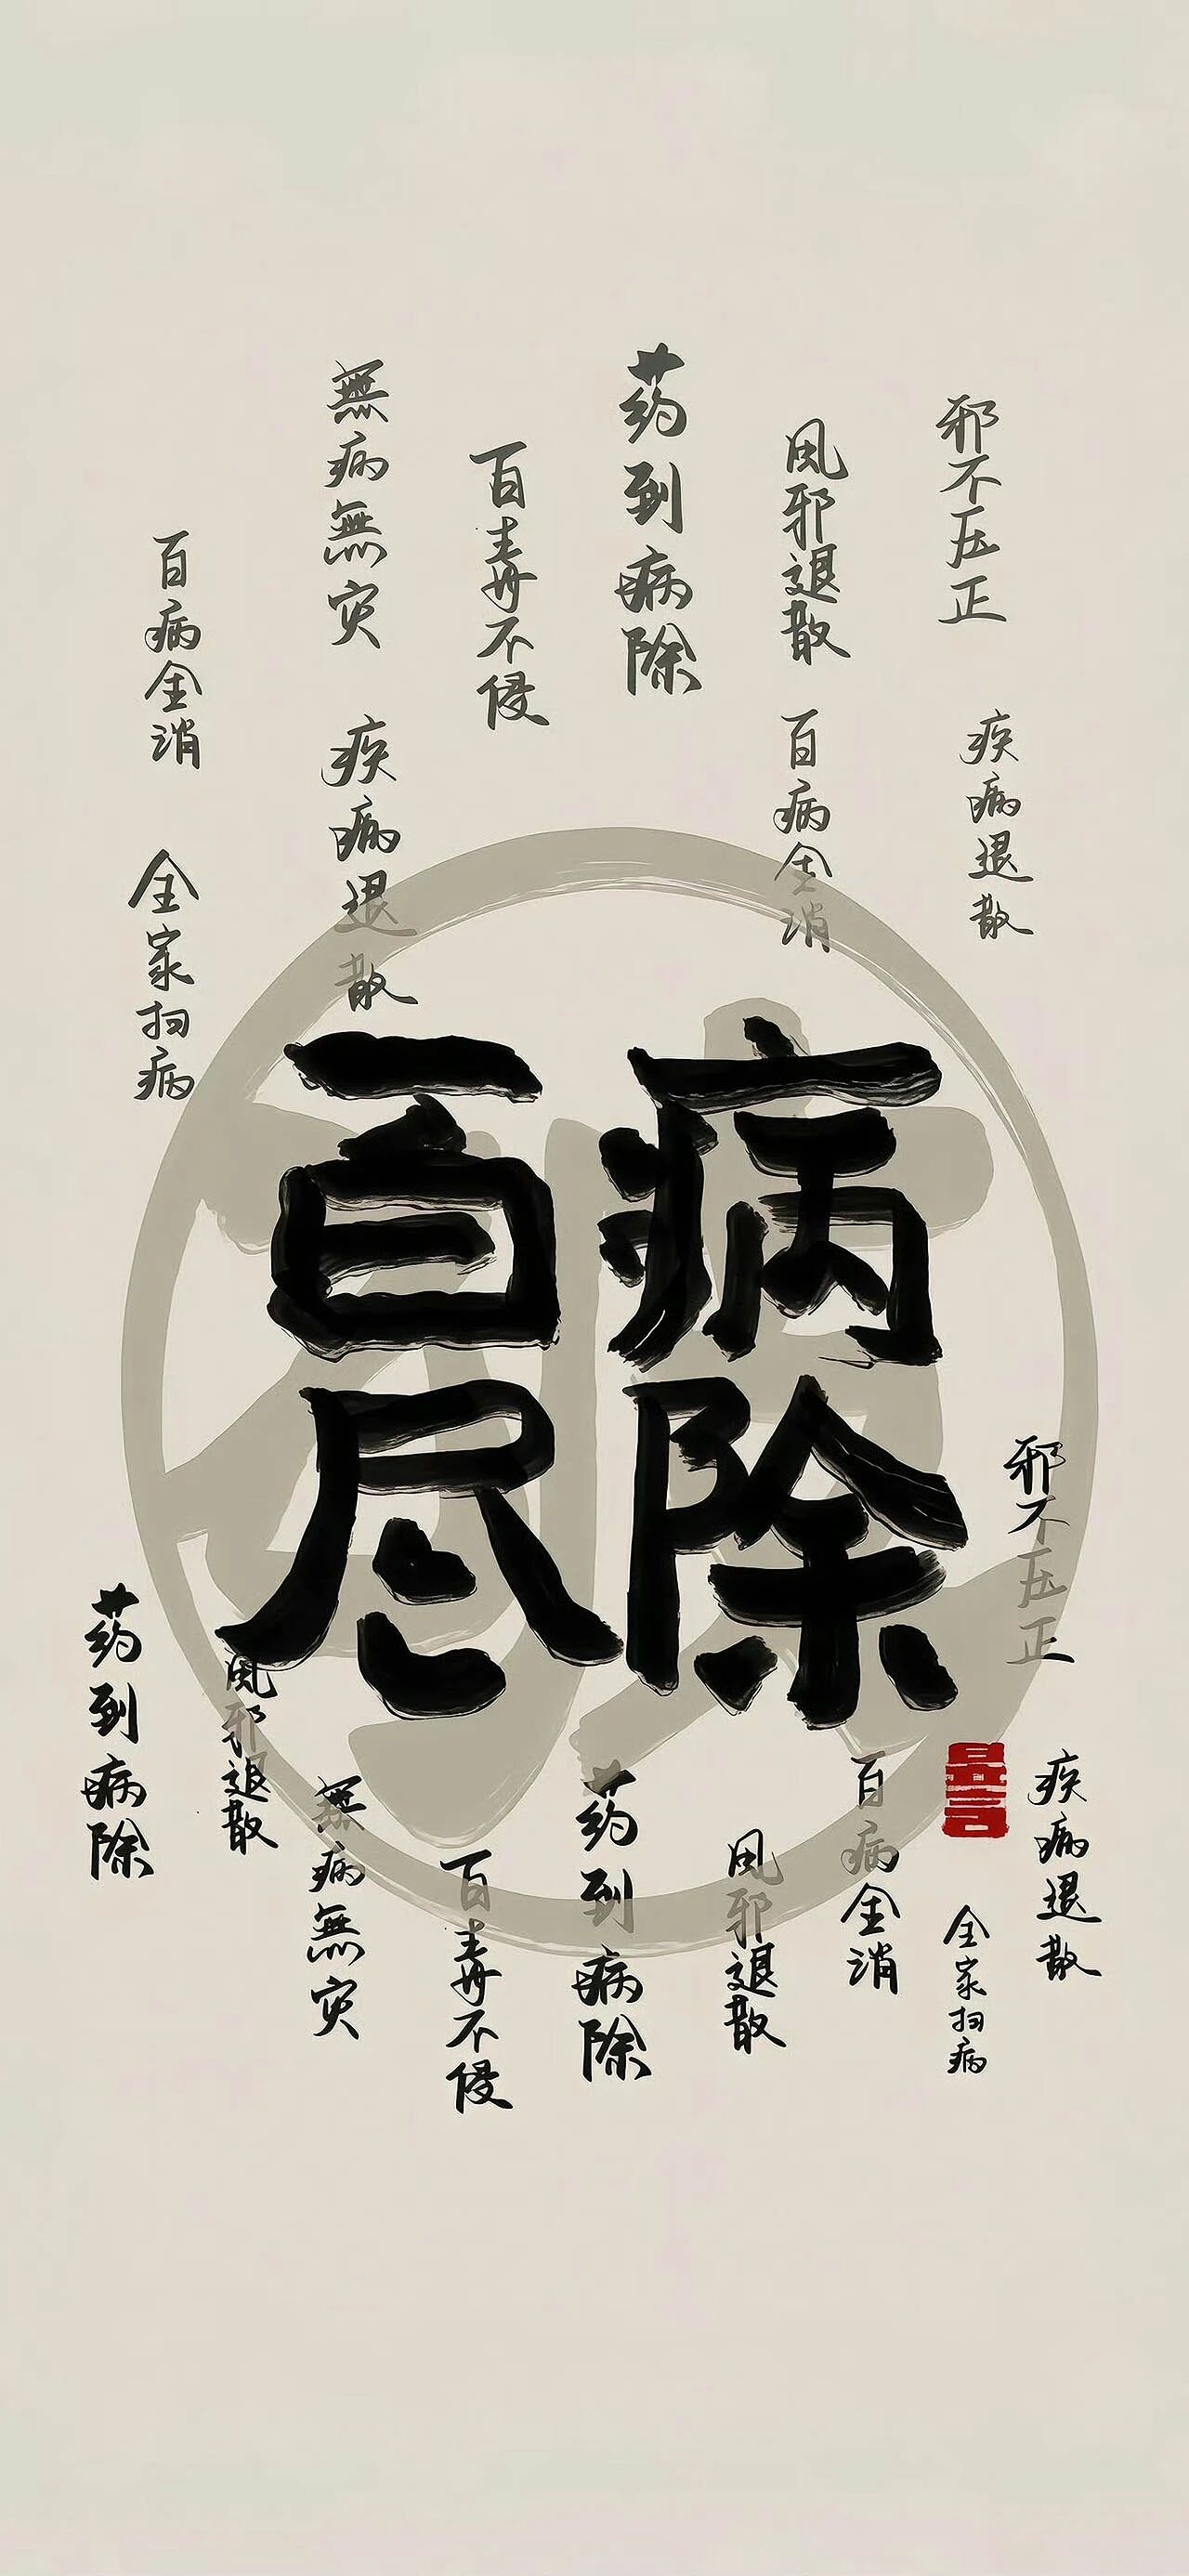 百病全消
無病無灾
百毒不侵
药到病除
風邪退散
邪不压正
全家扫病
疾病退散
百病全消
疾病退散
百病
尽除
邪不压正
药到病除
風邪退散
無病無灾
百毒不侵
药到病除
風邪退散
百病全消
全家扫病
疾病退散